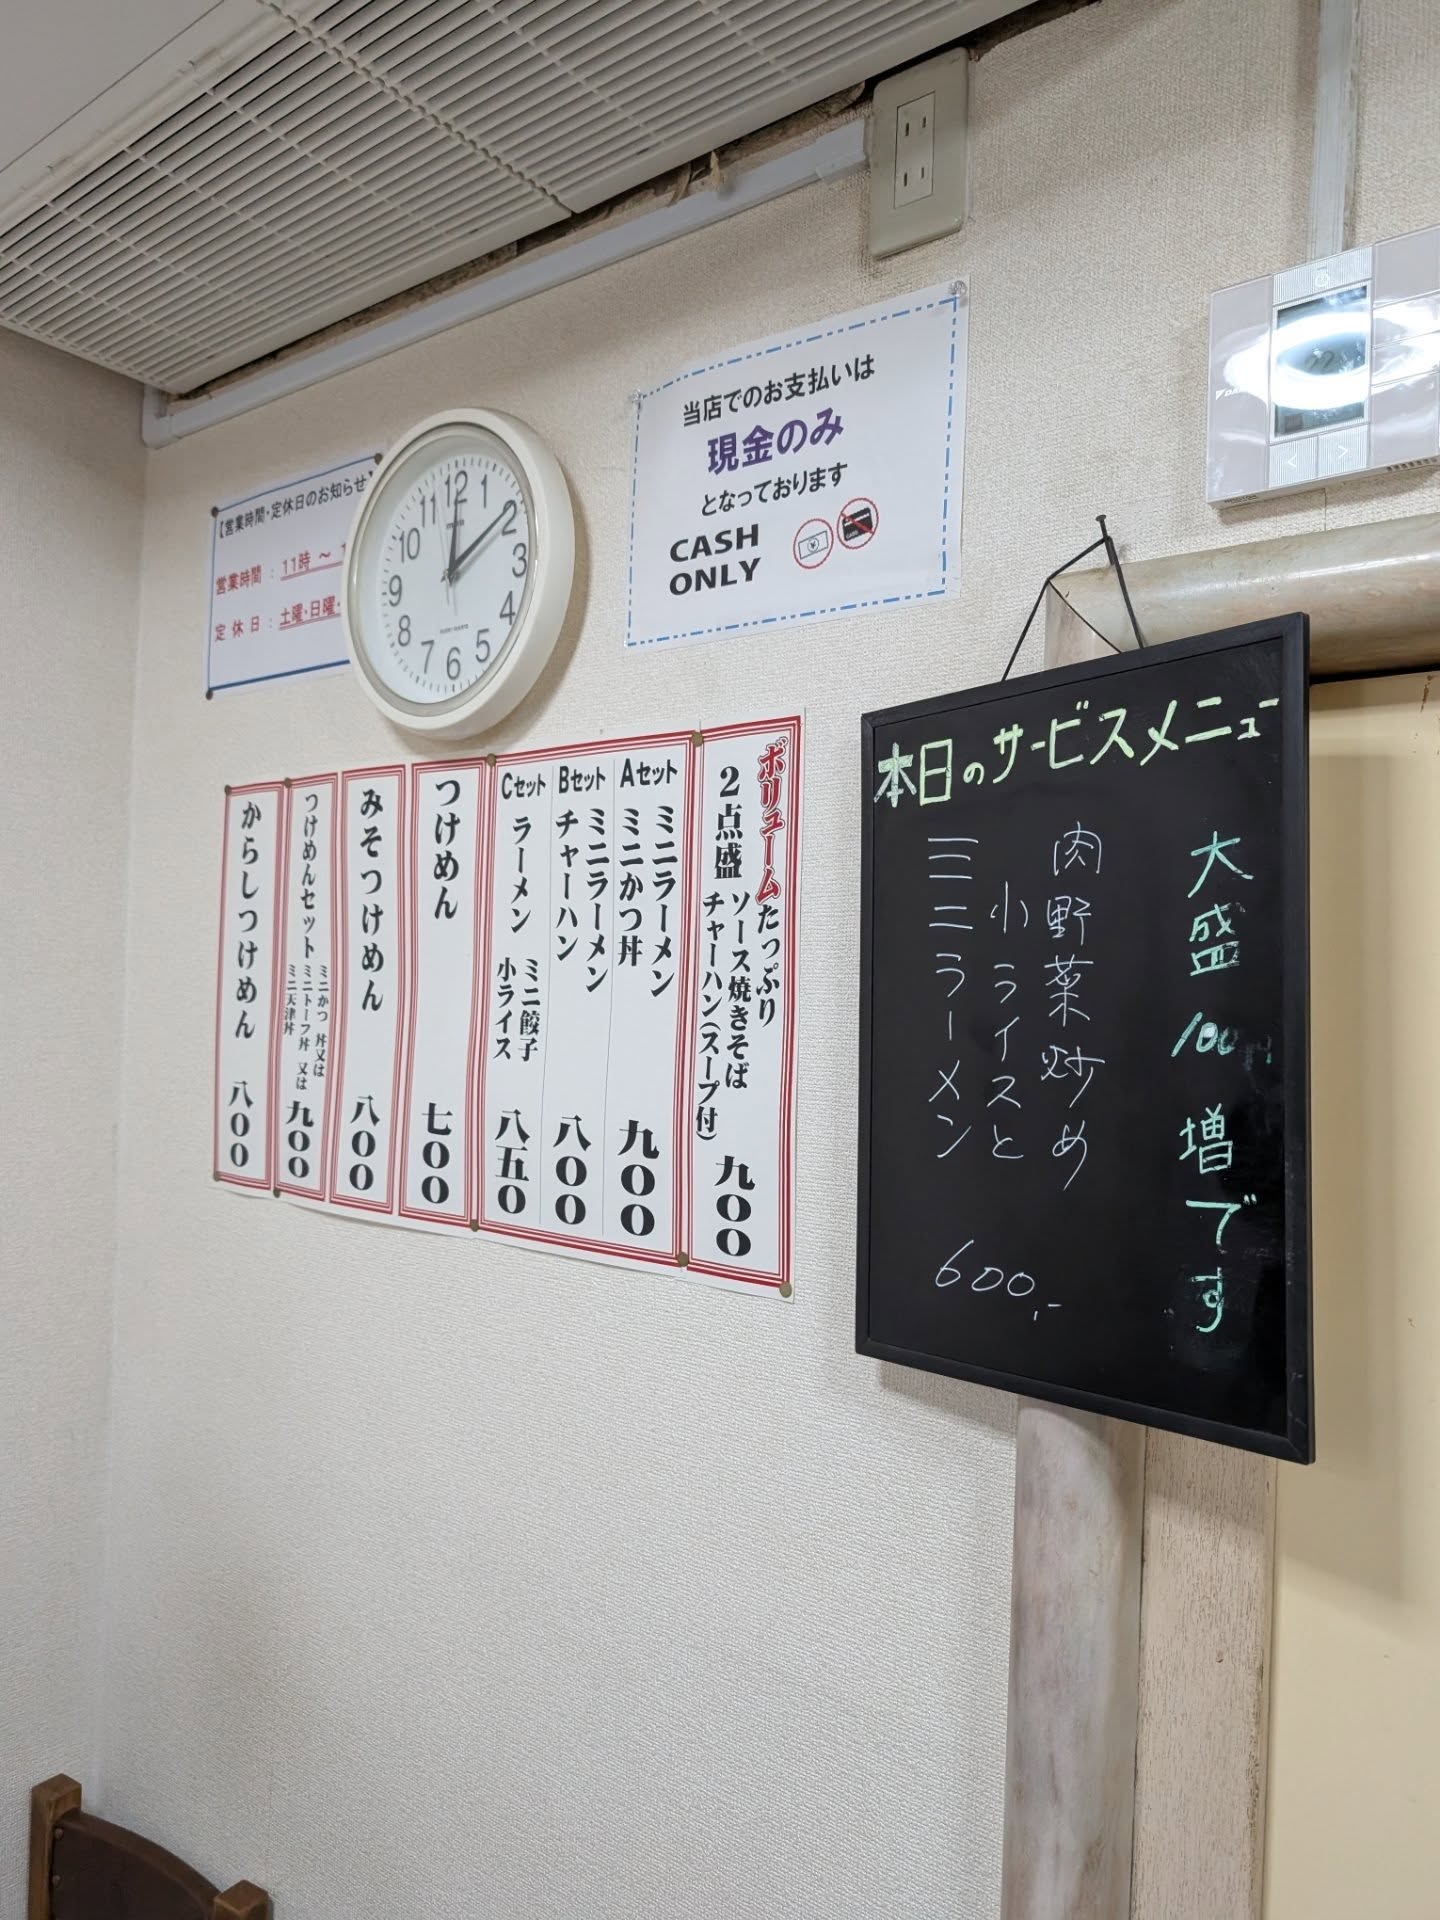 【営業時間・定休日のお知らせ】
営業時間 : 11時 ～
定休日 : 土曜・日曜・
12
1
2
3
4
5
6
7
8
9
10
11
当店でのお支払いは
現金のみ
となっております
CASH
ONLY
本日のサービスメニュー
大盛 100円 増です
肉野菜炒め
小ライスと
ミニラーメン
600,-
ボリュームたっぷり
2点盛 ソース焼きそば
チャーハン(スープ付)
九〇〇
Aセット
ミニラーメン
ミニかつ丼
九〇〇
Bセット
ミニラーメン
チャーハン
八〇〇
Cセット
ラーメン
ミニ餃子
小ライス
八五〇
つけめん 七〇〇
みそつけめん 八〇〇
つけめんセット
ミニかつ丼又は
ミニトーフ丼 又は
ミニ天津丼
九〇〇
からしつけめん 八〇〇